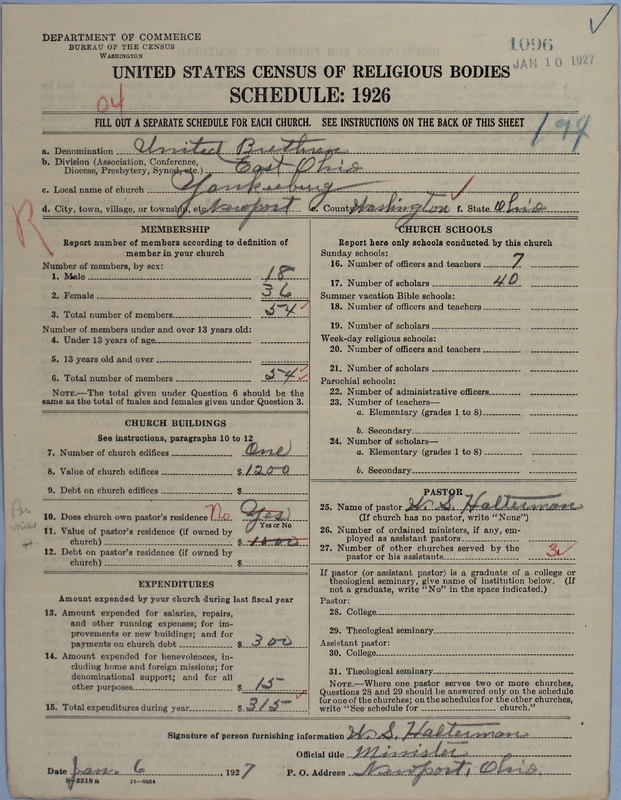 DEPARTMENT OF COMMERCE
BUREAU OF THE CENSUS
WASHINGTON
1096
JAN 10 1927
UNITED STATES CENSUS OF RELIGIOUS BODIES
SCHEDULE: 1926
04
FILL OUT A SEPARATE SCHEDULE FOR EACH CHURCH. SEE INSTRUCTIONS ON THE BACK OF THIS SHEET
194
a. Denomination United Brethren
b. Division (Association, Conference, Diocese, Presbytery, Synod, etc.) East Ohio
c. Local name of church Yankeeburg
d. City, town, village, or township, etc. Newport e. County Washington f. State Ohio
R
MEMBERSHIP
Report number of members according to definition of
member in your church
Number of members, by sex:
1. Male 18
2. Female 36
3. Total number of members 54
Number of members under and over 13 years old:
4. Under 13 years of age
5. 13 years old and over
6. Total number of members 54
NOTE.—The total given under Question 6 should be
same as the total of males and females given under Question 3.
CHURCH BUILDINGS
See instructions, paragraphs 10 to 12
7. Number of church edifices One
8. Value of church edifices $1200
9. Debt on church edifices $
10. Does church own pastor's residence No Yes
Yes or No
11. Value of pastor's residence (if owned by
church) $1000
12. Debt on pastor's residence (if owned by
church) $
EXPENDITURES
Amount expended by your church during last fiscal year
13. Amount expended for salaries, repairs,
and other running expenses; for im-
provements or new buildings; and for
payments on church debt $300
14. Amount expended for benevolences, in-
cluding home and foreign missions; for
denominational support; and for all
other purposes $15
15. Total expenditures during year $315
CHURCH SCHOOLS
Report here only schools conducted by this church
Sunday schools:
16. Number of officers and teachers 7
17. Number of scholars 40
Summer vacation Bible schools:
18. Number of officers and teachers
19. Number of scholars
Week-day religious schools:
20. Number of officers and teachers
21. Number of scholars
Parochial schools:
22. Number of administrative officers
23. Number of teachers—
a. Elementary (grades 1 to 8)
b. Secondary
24. Number of scholars—
a. Elementary (grades 1 to 8)
b. Secondary
PASTOR
25. Name of pastor W. S. Halterman
(If church has no pastor, write "None")
26. Number of ordained ministers, if any, em-
ployed as assistant pastors
27. Number of other churches served by the
pastor or his assistants 3
If pastor (or assistant pastor) is a graduate of a college or
theological seminary, give name of institution below. (If
not a graduate, write "No" in the space indicated.)
Pastor:
28. College
29. Theological seminary
Assistant pastor:
30. College
31. Theological seminary
NOTE.—Where one pastor serves two or more churches,
Questions 28 and 29 should be answered only on the schedule
for one of the churches; on the schedules for the other churches,
write "See schedule for church."
Signature of person furnishing information W. S. Halterman
Official title Minister
Date Jan. 6, 1927 P. O. Address Newport, Ohio.
11—9054